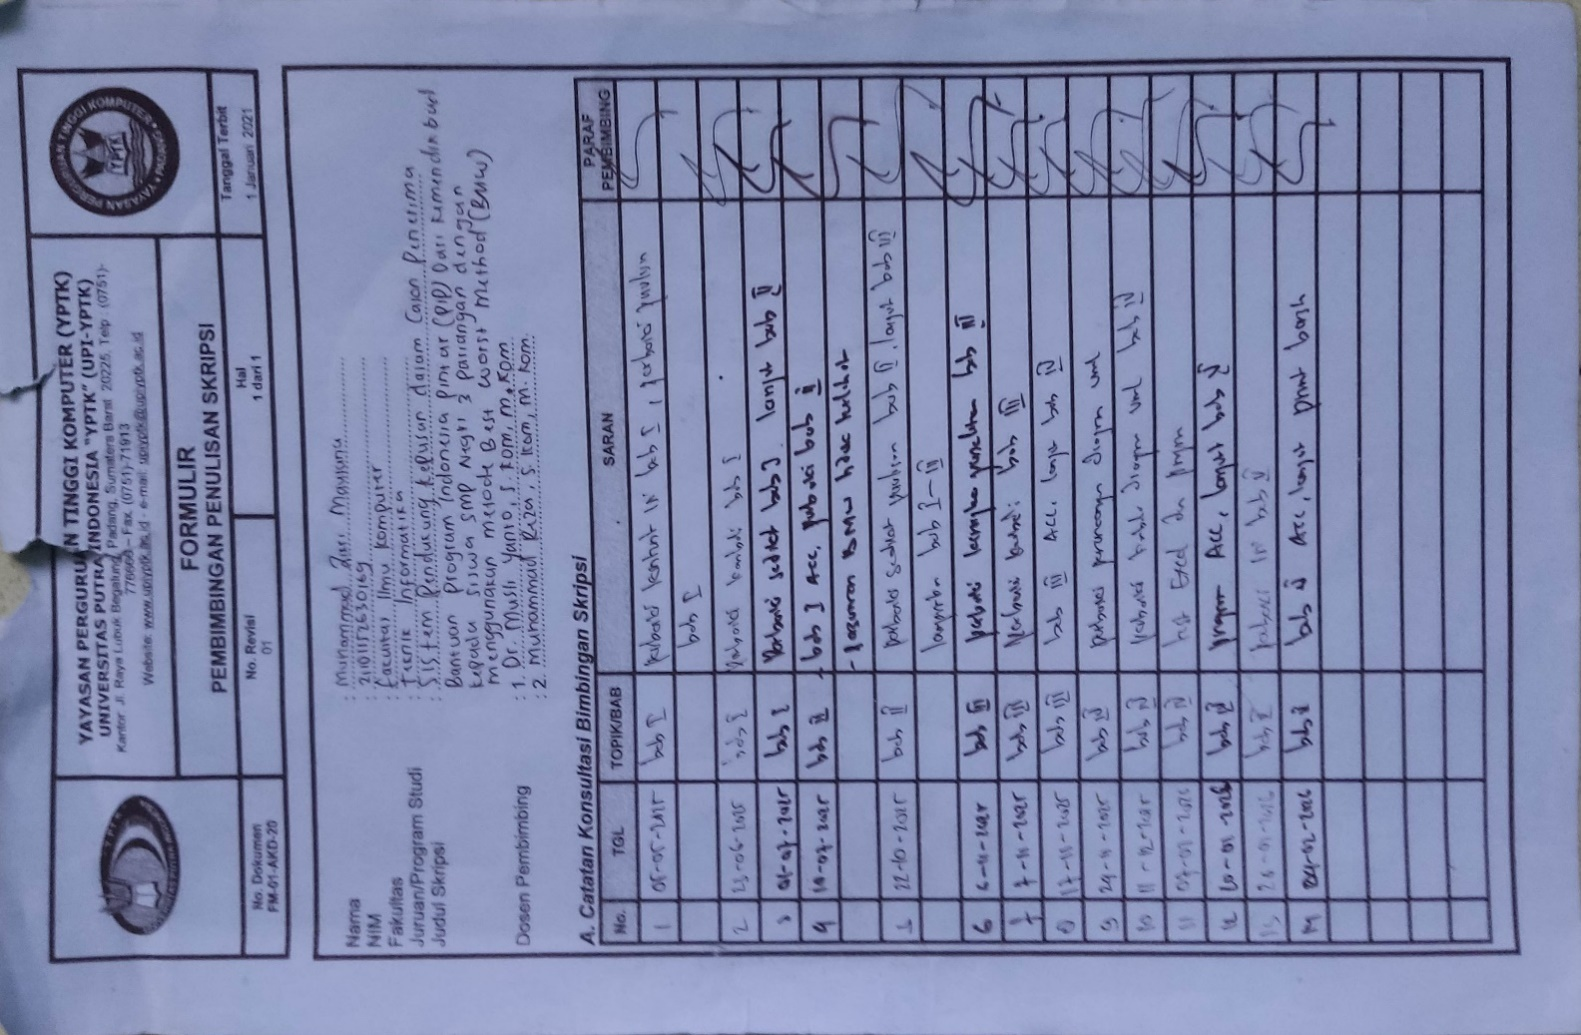 YAYASAN PERGURUAN TINGGI KOMPUTER (YPTK)
UNIVERSITAS PUTRA INDONESIA "YPTK" (UPI-YPTK)
Kantor Jl. Raya Lubuk Begalung Padang, Sumatera Barat 20225, Telp : (0751)-
776666 – Fax. (0751)-71913
Website: www.upiyptk.ac.id - e-mail: upiyptk@upiyptk.ac.id
YAYASAN PERGURUAN TINGGI KOMPUTER • PADANG
YPTK
FORMULIR
PEMBIMBINGAN PENULISAN SKRIPSI
No. Dokumen
FM-01-AKD-20
No. Revisi
01
Hal
1 dari 1
Tanggal Terbit
1 Januari 2021
Nama : Muhammad Maulana
NIM
Fakultas : Fakultas Ilmu Komputer
Jururan/Program Studi : Teknik Informatika
Judul Skripsi : Sistem Pendukung Kepusan dalam Calon Penerima
Bantuan Program Indonesia Pintar (PIP) Dari Kemendikbud
kepada siswa SMP Negri 3 Pariangan dengan
menggunakan metode Best Worst Method (BMW)
Dosen Pembimbing : 1. Dr. Musli Yanto, S.Kom, M.Kom
: 2. Muhammad Reza, S.Kom, M.Kom
A. Catatan Konsultasi Bimbingan Skripsi
No. TGL TOPIK/BAB SARAN PARAF PEMBIMBING
1 05-05-2025 bab I perbaiki bab I, perbaiki
bab I
2 23-06-2025 bab I bab I
3 01-07-2025 bab I Perbaiki sedikit bab I. lanjut bab II
4 10-07-2025 bab II bab I Acc, perbaiki bab II
BMW
5 22-10-2025 bab II perbaiki sedikit bab II, lanjut bab III
bab I-III
6 6-11-2025 bab III perbaiki kerangka penelitian bab III
7 7-11-2025 bab III Perbaiki bab III
8 17-11-2025 bab III bab III Acc, lanjut bab IV
9 24-11-2025 bab IV perbaiki diagram uml
10 11-12-2025 bab IV perbaiki diagram uml bab IV
11 07-01-2026 bab IV Excel dan program
12 20-01-2026 bab IV program Acc, lanjut bab V
13 26-01-2026 bab V bab V
14 04-02-2026 bab V bab V Acc, lanjut print